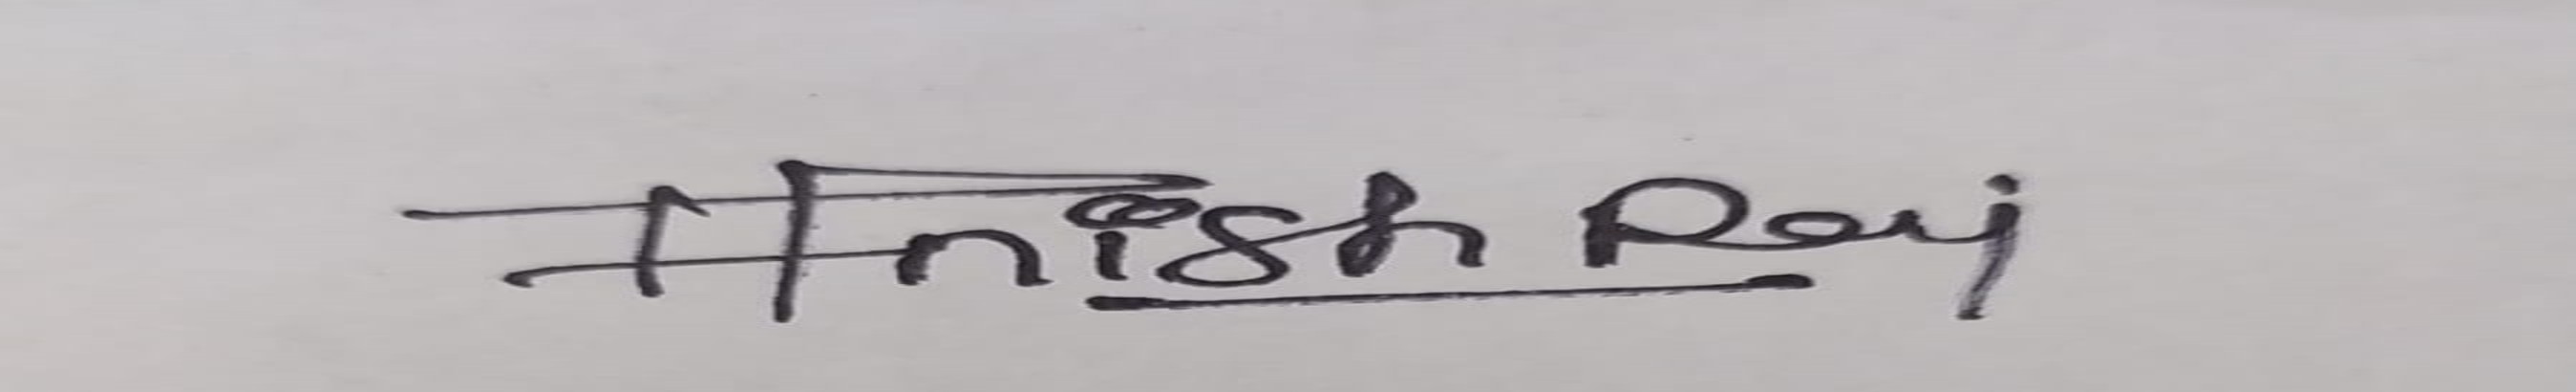 Anish Raj